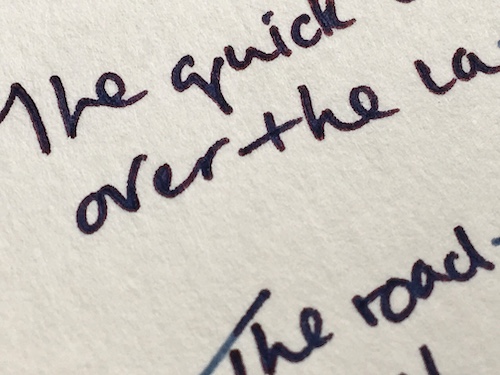 The quick
over the la
The road-